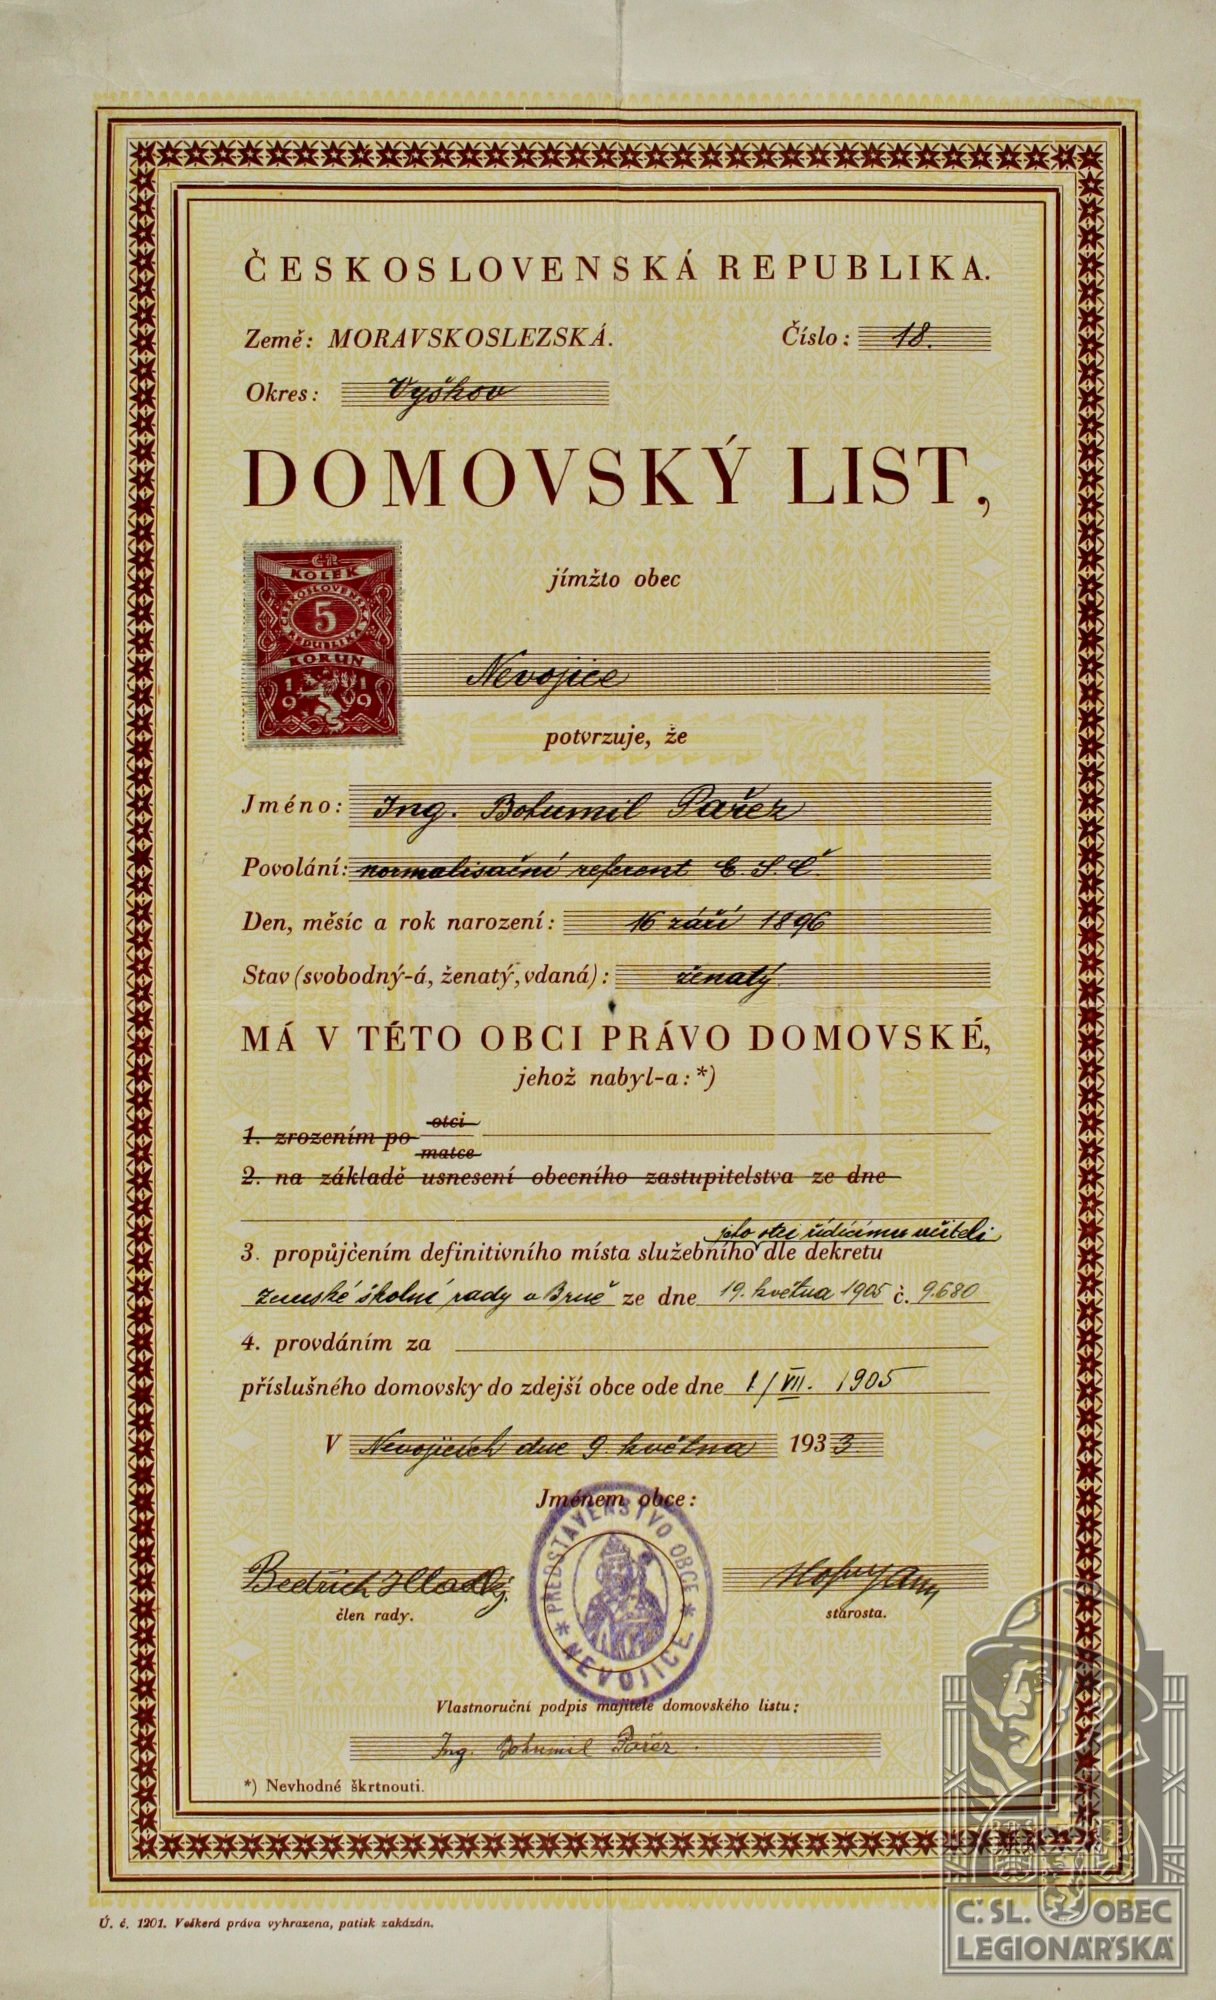 ČESKOSLOVENSKÁ REPUBLIKA.
Země: MORAVSKOSLEZSKÁ. Číslo: 18.
Okres: Vyškov
DOMOVSKÝ LIST,
ČR
KOLEK
ČESKOSLOVENSKÁ REPUBLIKA
5
KORUN
1919
jímžto obec
Nevojice
potvrzuje, že
Jméno: Ing. Bohumil Pařez
Povolání: normalisační referent E. S. Č.
Den, měsíc a rok narození: 16 září 1896
Stav (svobodný-á, ženatý, vdaná): ženatý.
MÁ V TÉTO OBCI PRÁVO DOMOVSKÉ,
jehož nabyl-a: *)
1. zrozením po otci
matce
2. na základě usnesení obecního zastupitelstva ze dne
jeho otci řídícímu učiteli
3. propůjčením definitivního místa služebního dle dekretu
zemské školní rady v Brně ze dne 19. května 1905 č. 9.680
4. provdáním za
příslušného domovsky do zdejší obce ode dne 1/VII. 1905
V Nevojicích dne 9. května 1933.
Jménem obce:
PŘEDSTAVENSTVO OBCE
* NEVOJICE *
Bedřich Hladký
člen rady. starosta.
Vlastnoruční podpis majitele domovského listu:
Ing. Bohumil Pařez.
*) Nevhodné škrtnouti.
Ú. č. 1201. Veškerá práva vyhrazena, patisk zakázán.
Č. SL. OBEC
LEGIONÁŘSKÁ